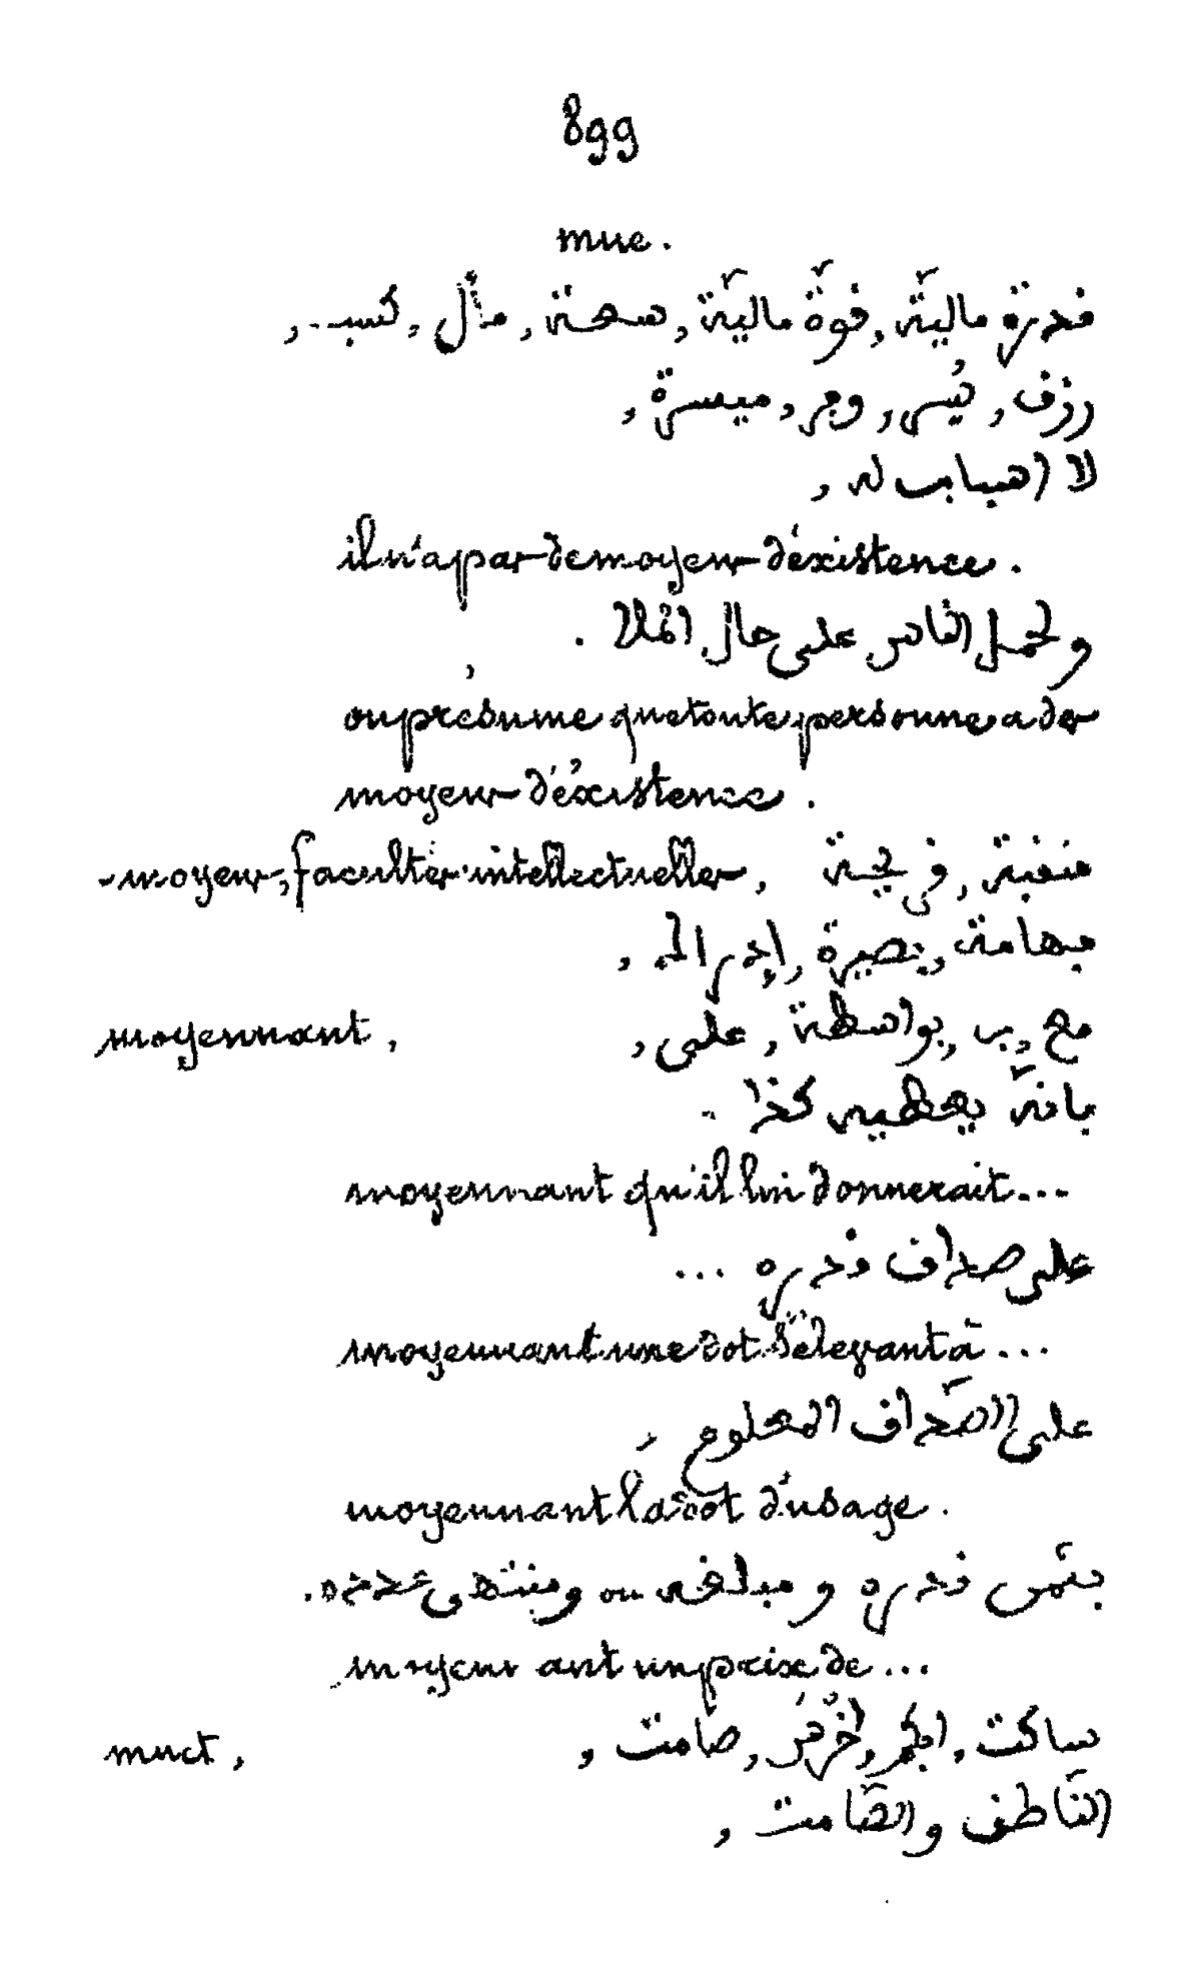 899
mue.
قدرة ماليّة, قوّة ماليّة, سعة, مال, كسب,
رزق, يُسر, وفر, ميسرة,
لا اسباب له,
il n'a pas de moyens d'éxistence.
وتحمل الناس على حال الملا.
on présume que toute personne a des
moyens d'éxistence.
- moyens, facultés intellectuelles, منقبة, قريحة
فهامة, بصيرة, إدراك,
moyennant, مع, ب, بواسطة, على,
بانّه يعطيه كذا.
moyennant qu'il lui donnerait...
على صداق قدره ...
moyennant une dot s'élevant à ...
على الصّداق المعلوم
moyennant la dot d'usage.
بثمن قدره و مبلغه ou ومنتهى عدده.
moyennant un prix de ...
muet, ساكت, ابكم, اخْرَس, صامت,
النّاطق والصّامت,